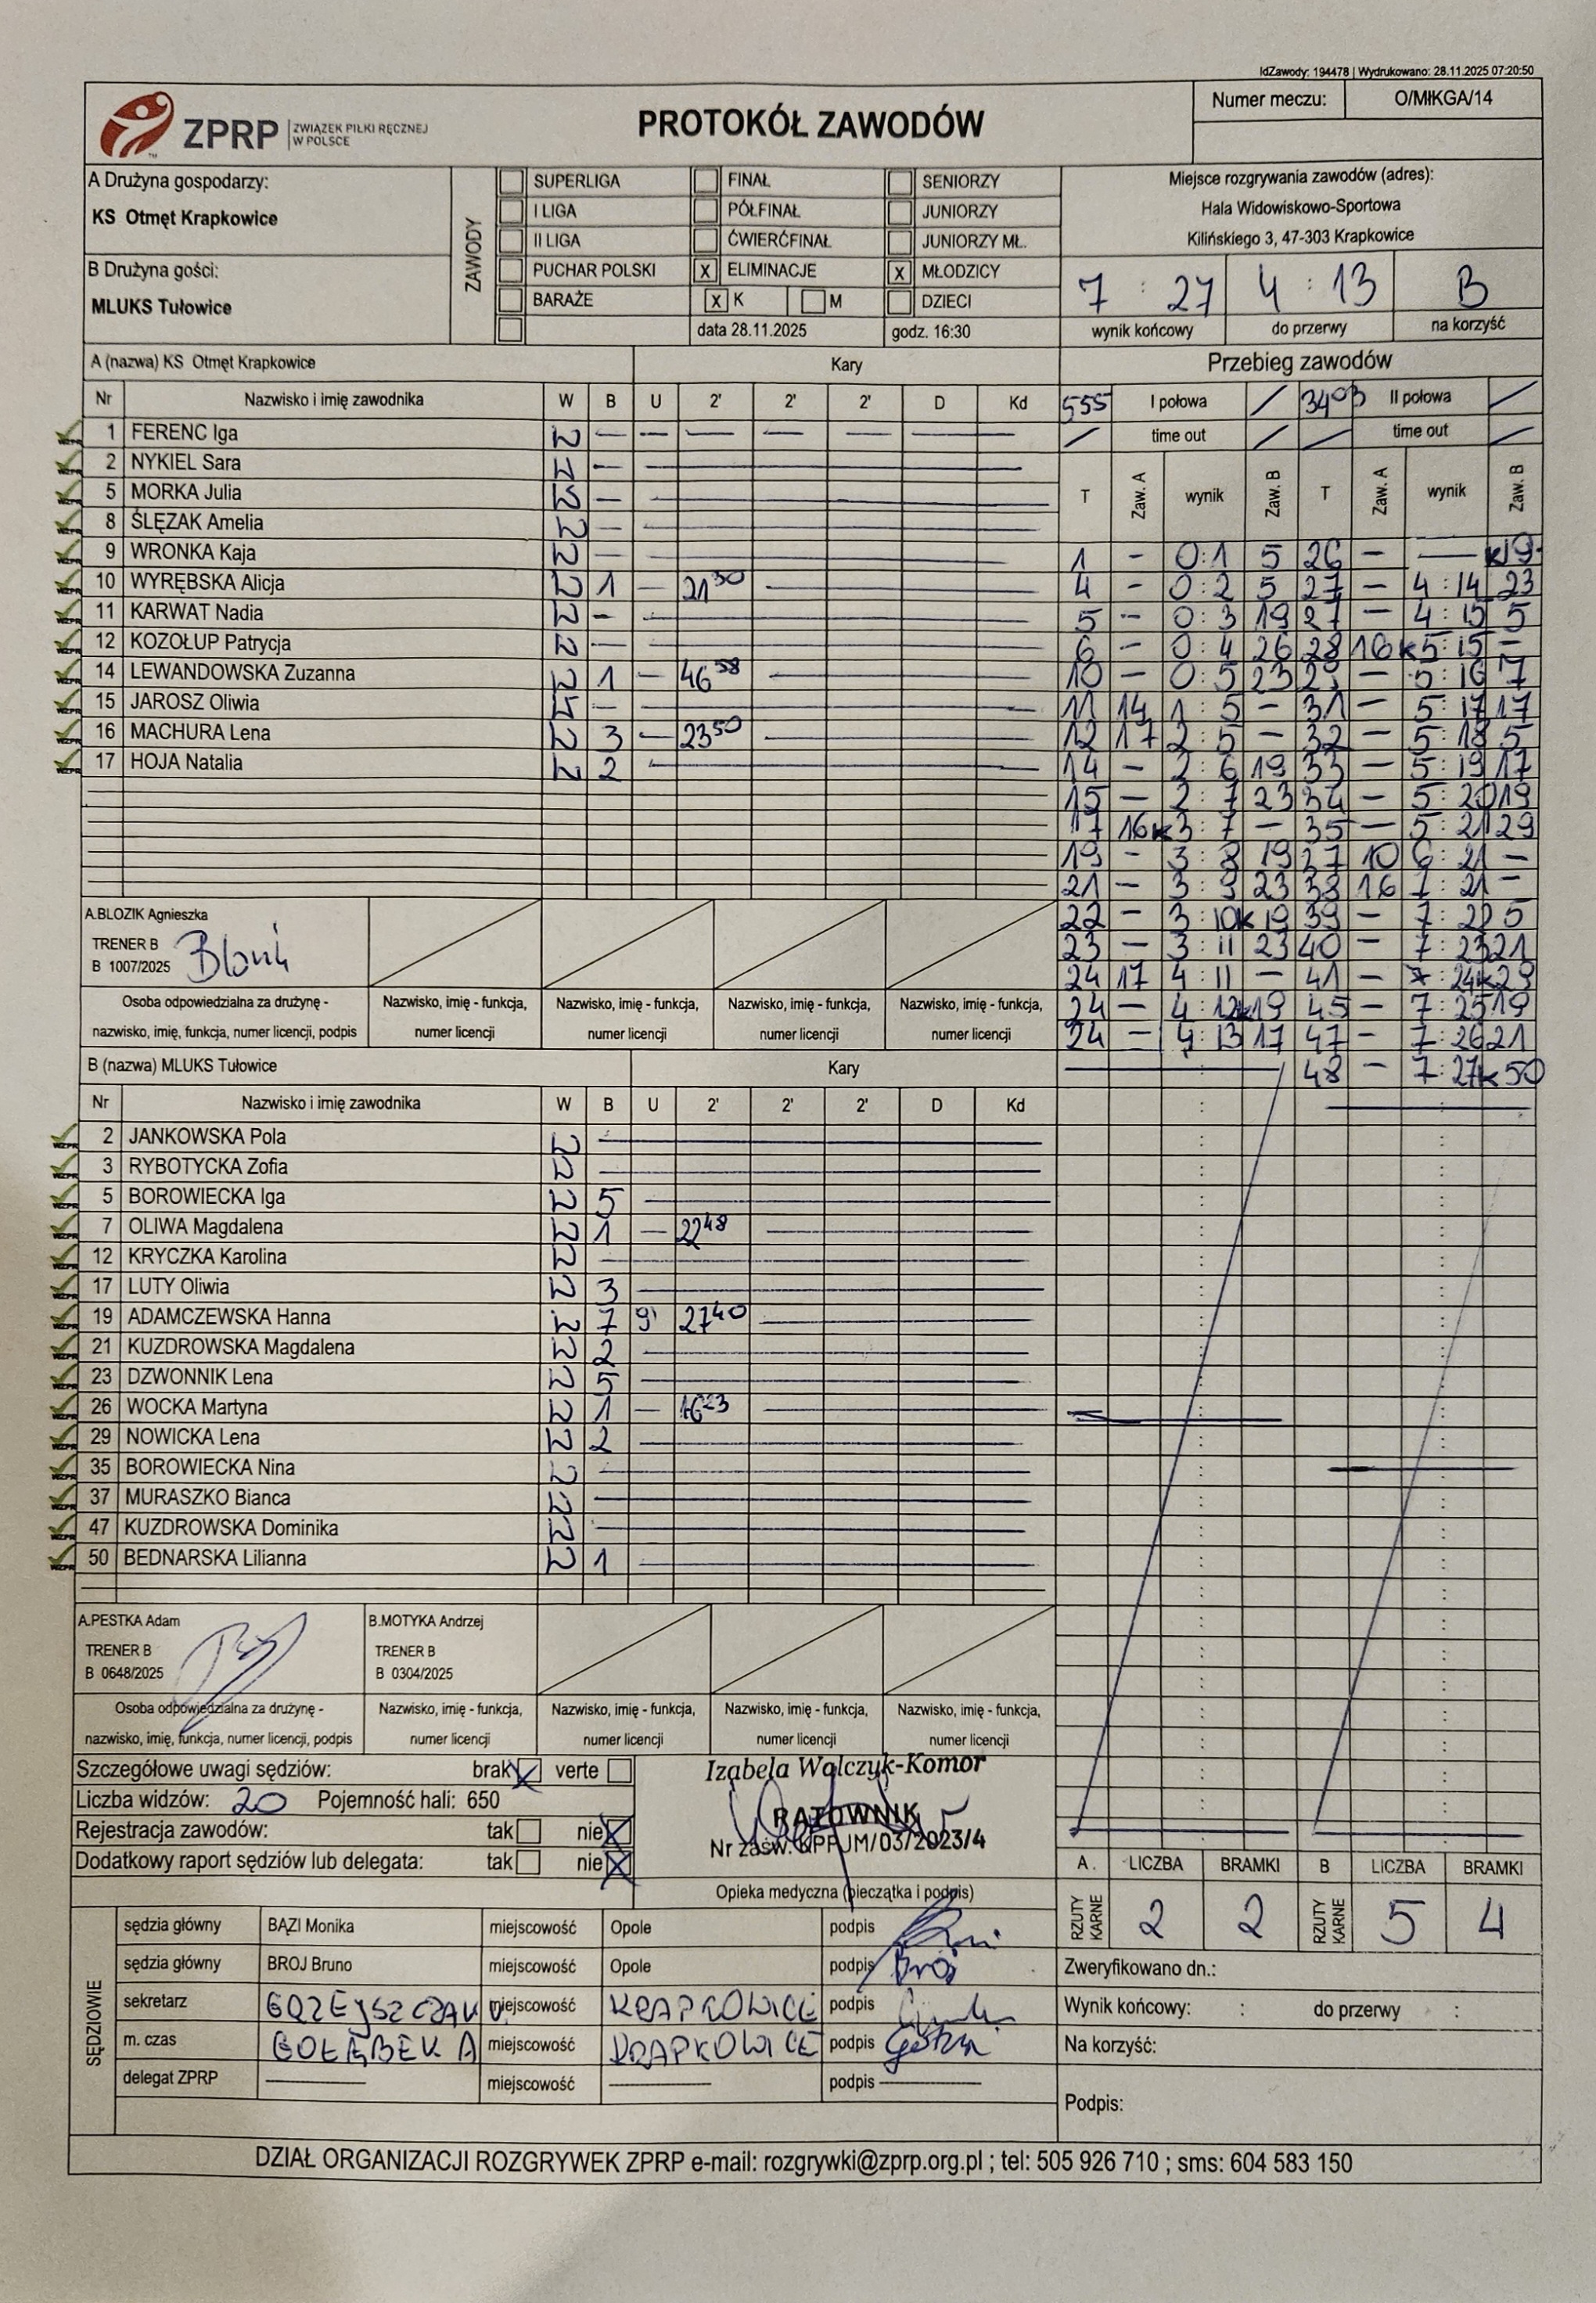 IdZawody: 194478 | Wydrukowano: 28.11.2025 07:20:50
ZPRP ZWIĄZEK PIŁKI RĘCZNEJ W POLSCE
PROTOKÓŁ ZAWODÓW
Numer meczu: O/MłKGA/14
A Drużyna gospodarzy:
KS Otmęt Krapkowice
B Drużyna gości:
MLUKS Tułowice
ZAWODY
SUPERLIGA FINAŁ SENIORZY
I LIGA PÓŁFINAŁ JUNIORZY
II LIGA ĆWIERĆFINAŁ JUNIORZY MŁ.
PUCHAR POLSKI X ELIMINACJE X MŁODZICY
BARAŻE X K M DZIECI
data 28.11.2025 godz. 16:30
Miejsce rozgrywania zawodów (adres):
Hala Widowiskowo-Sportowa
Kilińskiego 3, 47-303 Krapkowice
7 : 27 4 : 13 B
wynik końcowy do przerwy na korzyść
A (nazwa) KS Otmęt Krapkowice Kary
Nr Nazwisko i imię zawodnika W B U 2' 2' 2' D Kd
1 FERENC Iga
2 NYKIEL Sara
5 MORKA Julia
8 ŚLĘZAK Amelia
9 WRONKA Kaja
10 WYRĘBSKA Alicja 1 — 21 30
11 KARWAT Nadia
12 KOZOŁUP Patrycja
14 LEWANDOWSKA Zuzanna 1 — 46 58
15 JAROSZ Oliwia
16 MACHURA Lena 3 — 23 50
17 HOJA Natalia 2
A.BLOZIK Agnieszka
TRENER B
B 1007/2025
Osoba odpowiedzialna za drużynę -
nazwisko, imię, funkcja, numer licencji, podpis
Nazwisko, imię - funkcja,
numer licencji
Nazwisko, imię - funkcja,
numer licencji
Nazwisko, imię - funkcja,
numer licencji
Nazwisko, imię - funkcja,
numer licencji
Przebieg zawodów
555 I połowa / II połowa /
/ time out / / time out /
T Zaw. A wynik Zaw. B T Zaw. A wynik Zaw. B
1 - 0:1 5 26 - — k19
4 - 0:2 5 27 - 4:14 23
5 - 0:3 19 27 - 4:15 5
6 - 0:4 26 28 16k 5:15 -
10 - 0:5 23 29 - 5:16 7
11 14 1:5 - 31 - 5:17 17
12 17 2:5 - 32 - 5:18 5
14 - 2:6 19 33 - 5:19 17
15 - 2:7 23 34 - 5:20 19
17 16k 3:7 - 35 - 5:21 29
19 - 3:8 19 37 10 6:21 -
21 - 3:9 23 38 16 7:21 -
22 - 3:10k 19 39 - 7:22 5
23 - 3:11 23 40 - 7:23 21
24 17 4:11 - 41 - 7:24k 29
24 - 4:12k 19 45 - 7:25 19
24 - 4:13 17 47 - 7:26 21
48 - 7:27k 50
B (nazwa) MLUKS Tułowice Kary
Nr Nazwisko i imię zawodnika W B U 2' 2' 2' D Kd
2 JANKOWSKA Pola
3 RYBOTYCKA Zofia
5 BOROWIECKA Iga 5
7 OLIWA Magdalena 1 — 22 48
12 KRYCZKA Karolina
17 LUTY Oliwia 3
19 ADAMCZEWSKA Hanna 7 9' 27 40
21 KUZDROWSKA Magdalena 2
23 DZWONNIK Lena 5
26 WOCKA Martyna 1 —
29 NOWICKA Lena 2
35 BOROWIECKA Nina
37 MURASZKO Bianca
47 KUZDROWSKA Dominika
50 BEDNARSKA Lilianna 1
A.PESTKA Adam
TRENER B
B 0648/2025
B.MOTYKA Andrzej
TRENER B
B 0304/2025
Osoba odpowiedzialna za drużynę -
nazwisko, imię, funkcja, numer licencji, podpis
Nazwisko, imię - funkcja,
numer licencji
Nazwisko, imię - funkcja,
numer licencji
Nazwisko, imię - funkcja,
numer licencji
Nazwisko, imię - funkcja,
numer licencji
Szczegółowe uwagi sędziów: brak X verte
Liczba widzów: 20 Pojemność hali: 650
Rejestracja zawodów: tak nie X
Dodatkowy raport sędziów lub delegata: tak nie X
Izabela Walczyk-Komor
RATOWNIK
Nr zaśw. KPP JM/03/2023/4
Opieka medyczna (pieczątka i podpis)
A. LICZBA BRAMKI B LICZBA BRAMKI
RZUTY KARNE 2 2 RZUTY KARNE 5 4
SĘDZIOWIE
sędzia główny BĄZI Monika miejscowość Opole podpis
sędzia główny BROJ Bruno miejscowość Opole podpis Broj
sekretarz miejscowość KRAPKOWICE podpis
m. czas GOŁĘBEK A miejscowość KRAPKOWICE podpis
delegat ZPRP — miejscowość — podpis —
Zweryfikowano dn.:
Wynik końcowy: : do przerwy :
Na korzyść:
Podpis:
DZIAŁ ORGANIZACJI ROZGRYWEK ZPRP e-mail: rozgrywki@zprp.org.pl ; tel: 505 926 710 ; sms: 604 583 150